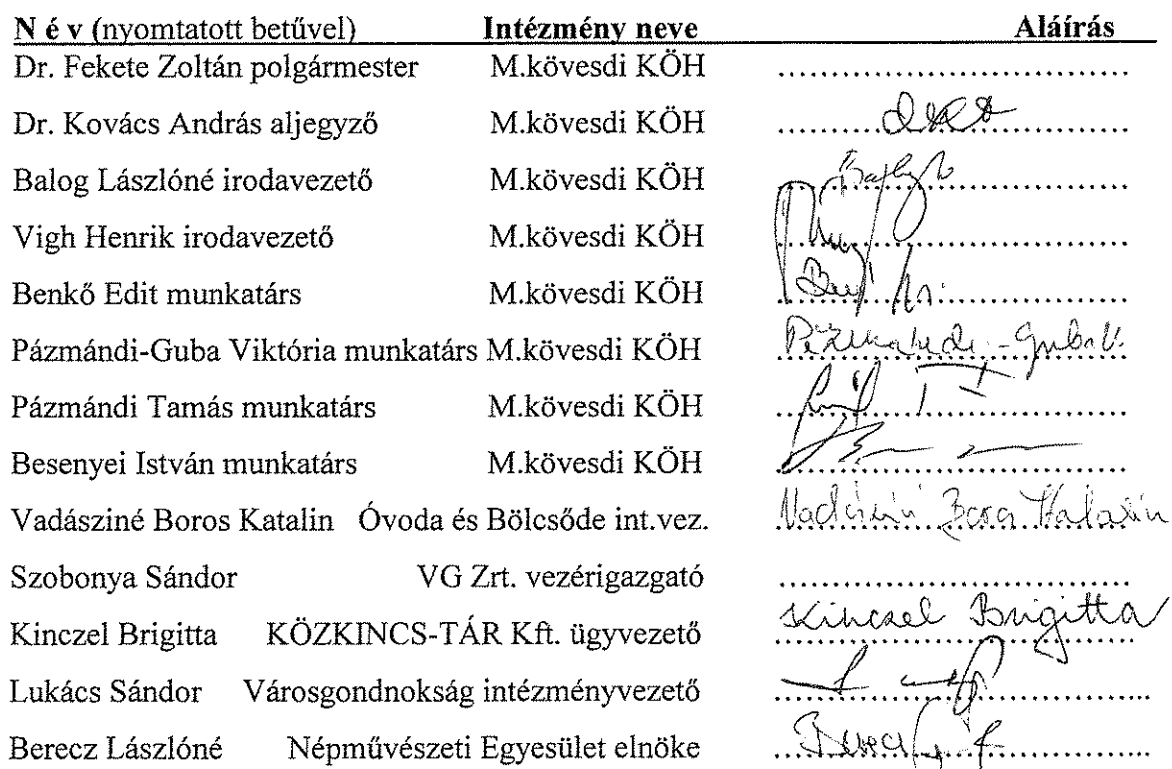 N é v (nyomtatott betűvel) Intézmény neve Aláírás
Dr. Fekete Zoltán polgármester M.kövesdi KÖH ................................
Dr. Kovács András aljegyző M.kövesdi KÖH
Balog Lászlóné irodavezető M.kövesdi KÖH
Vigh Henrik irodavezető M.kövesdi KÖH
Benkő Edit munkatárs M.kövesdi KÖH
Pázmándi-Guba Viktória munkatárs M.kövesdi KÖH Pázmándi-Guba V.
Pázmándi Tamás munkatárs M.kövesdi KÖH
Besenyei István munkatárs M.kövesdi KÖH
Vadásziné Boros Katalin Óvoda és Bölcsőde int.vez. Vadásziné Boros Katalin
Szobonya Sándor VG Zrt. vezérigazgató ................................
Kinczel Brigitta KÖZKINCS-TÁR Kft. ügyvezető Kinczel Brigitta
Lukács Sándor Városgondnokság intézményvezető
Berecz Lászlóné Népművészeti Egyesület elnöke